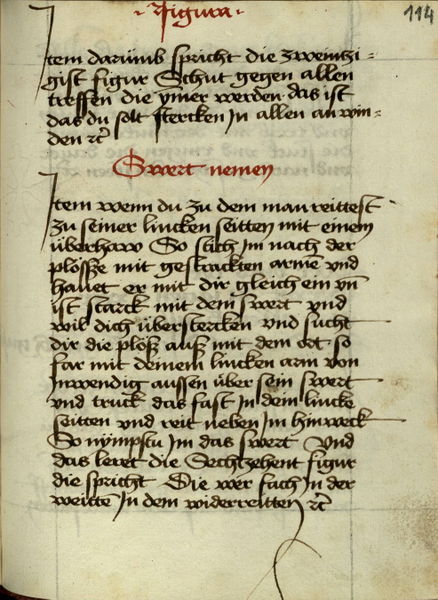 · Figura ·
114
Jtem darumb spricht die zwentzi-
gist figur Schut gegen allen
treffen die ymer werden das ist
das du solt stercken Jn allen an win-
den etc
Swert nemen
Jtem wenn du zu dem man reittest
zu seiner lincken seitten mit einem
überhaw So stich Jm nach der
plösse mit gestrackten armen vnd
hawet er mit dir gleich ein vnd
ist starck mit dem swert vnd
wil dich überstercken vnd sucht
dir die plösz ausz mit dem ort so
far mit deinem lincken arm von
Jnwendig aussen über sein swert
vnd truck das fast Jn dein lincke
seitten vnd reit neben Jm hinweck
So nympstu Jm das swert Vnd
das leret die Sechtzehent figur
die spricht Die wer fach Jn der
weitte Jn dem widerreitten etc